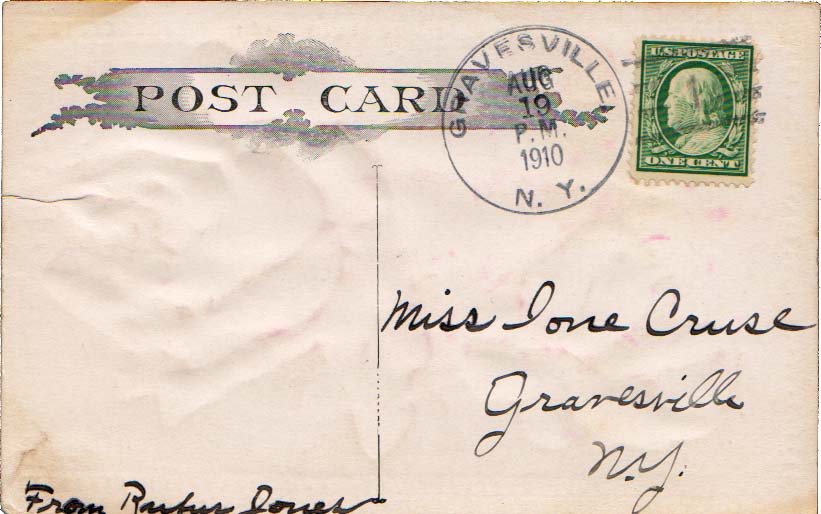 POST CARD
GRAVESVILLE
AUG
19
P.M.
1910
N. Y.
U.S. POSTAGE
ONE CENT
Miss Ione Cruse
Gravesville
N.Y.
From Rufus Jones